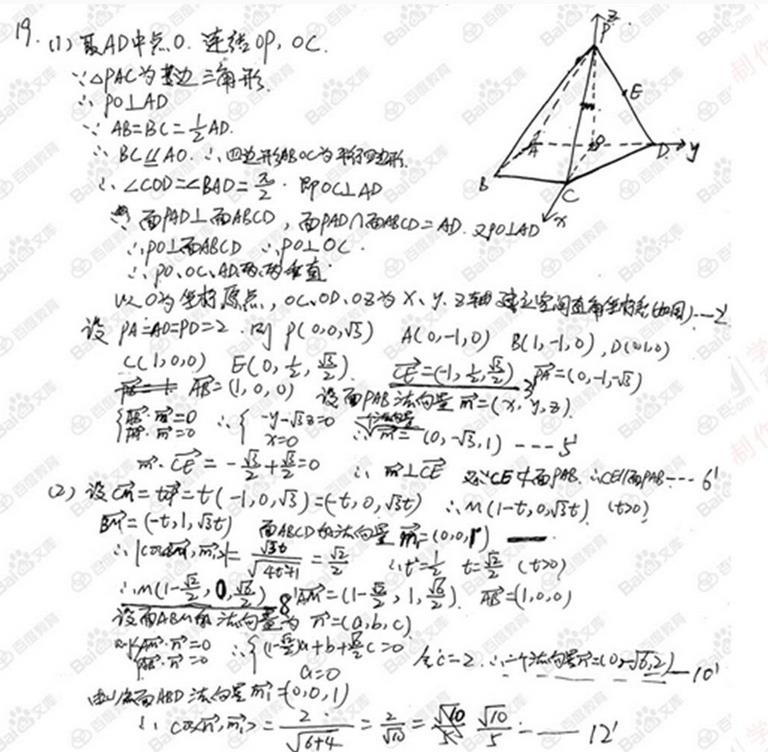 19. (1) 取AD中点O. 连结OP, OC.
∵△PAC为等边三角形
∴ PO⊥AD
∵ AB=BC=½AD.
∴ BC∥AO. ∴四边形ABOC为平行四边形.
∴ ∠COD=∠BAD=π/2. 即OC⊥AD
面PAD⊥面ABCD, 面PAD∩面ABCD=AD. 又PO⊥AD
∴PO⊥面ABCD ∴PO⊥OC.
∴PO、OC、AD两两垂直
以O为坐标原点, OC、OD、OZ为X、Y、Z轴 建立空间直角坐标系(如图)---2'
设 PA=AD=PD=2. 则 P(0,0,√3) A(0,-1,0) B(1,-1,0), D(0,1,0)
C(1,0,0) E(0,½,√3/2). CE=(-1,½,√3/2) 3' PA=(0,-1,-√3)
AB=(1,0,0) 设面PAB法向量m=(x,y,z).
{AP·m=0 AB·m=0 ∴{-y-√3z=0 x=0 ∴一个法向量m=(0,-√3,1) ----5'
m·CE=-√3/2+√3/2=0 ∴ m⊥CE 又∵CE⊄面PAB. ∴CE∥面PAB---6'
(2) 设CM=tCP=t(-1,0,√3)=(-t,0,√3t) ∴M(1-t,0,√3t) (t>0)
BM=(-t,1,√3t) 面ABCD的法向量m₁=(0,0,1)
∴|cos<BM,m₁>|=√3t/√(4t²+1)=√2/2 ∴t²=½ t=√2/2 (t>0)
∴M(1-√2/2,0,√6/2) 8' AM=(1-√2/2,1,√6/2). AB=(1,0,0)
设面ABM的法向量为n=(a,b,c)
则{AM·n=0 AB·n=0 ∴{(1-√2/2)a+b+√6/2c=0 a=0 令c=2.∴一个法向量n=(0,-√6,2)--10'
面ABD法向量m₁=(0,0,1)
∴ cos<n,m₁>=2/√(6+4)=2/√10=√10/5 √10/5 ---- 12'
Z
P
E
M
A
O
D
y
B
C
x
Bai百度教育
Bai百度文库